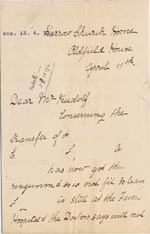 ans. 13. 4. Harrow Church Home
Oldfield House
April 11th
Dear Mr Rudolf
Concerning the
transfer of
S
has now got the
ringworm & so is not fit to leave
is still at the Fever
Hospital & the Doctor says will not